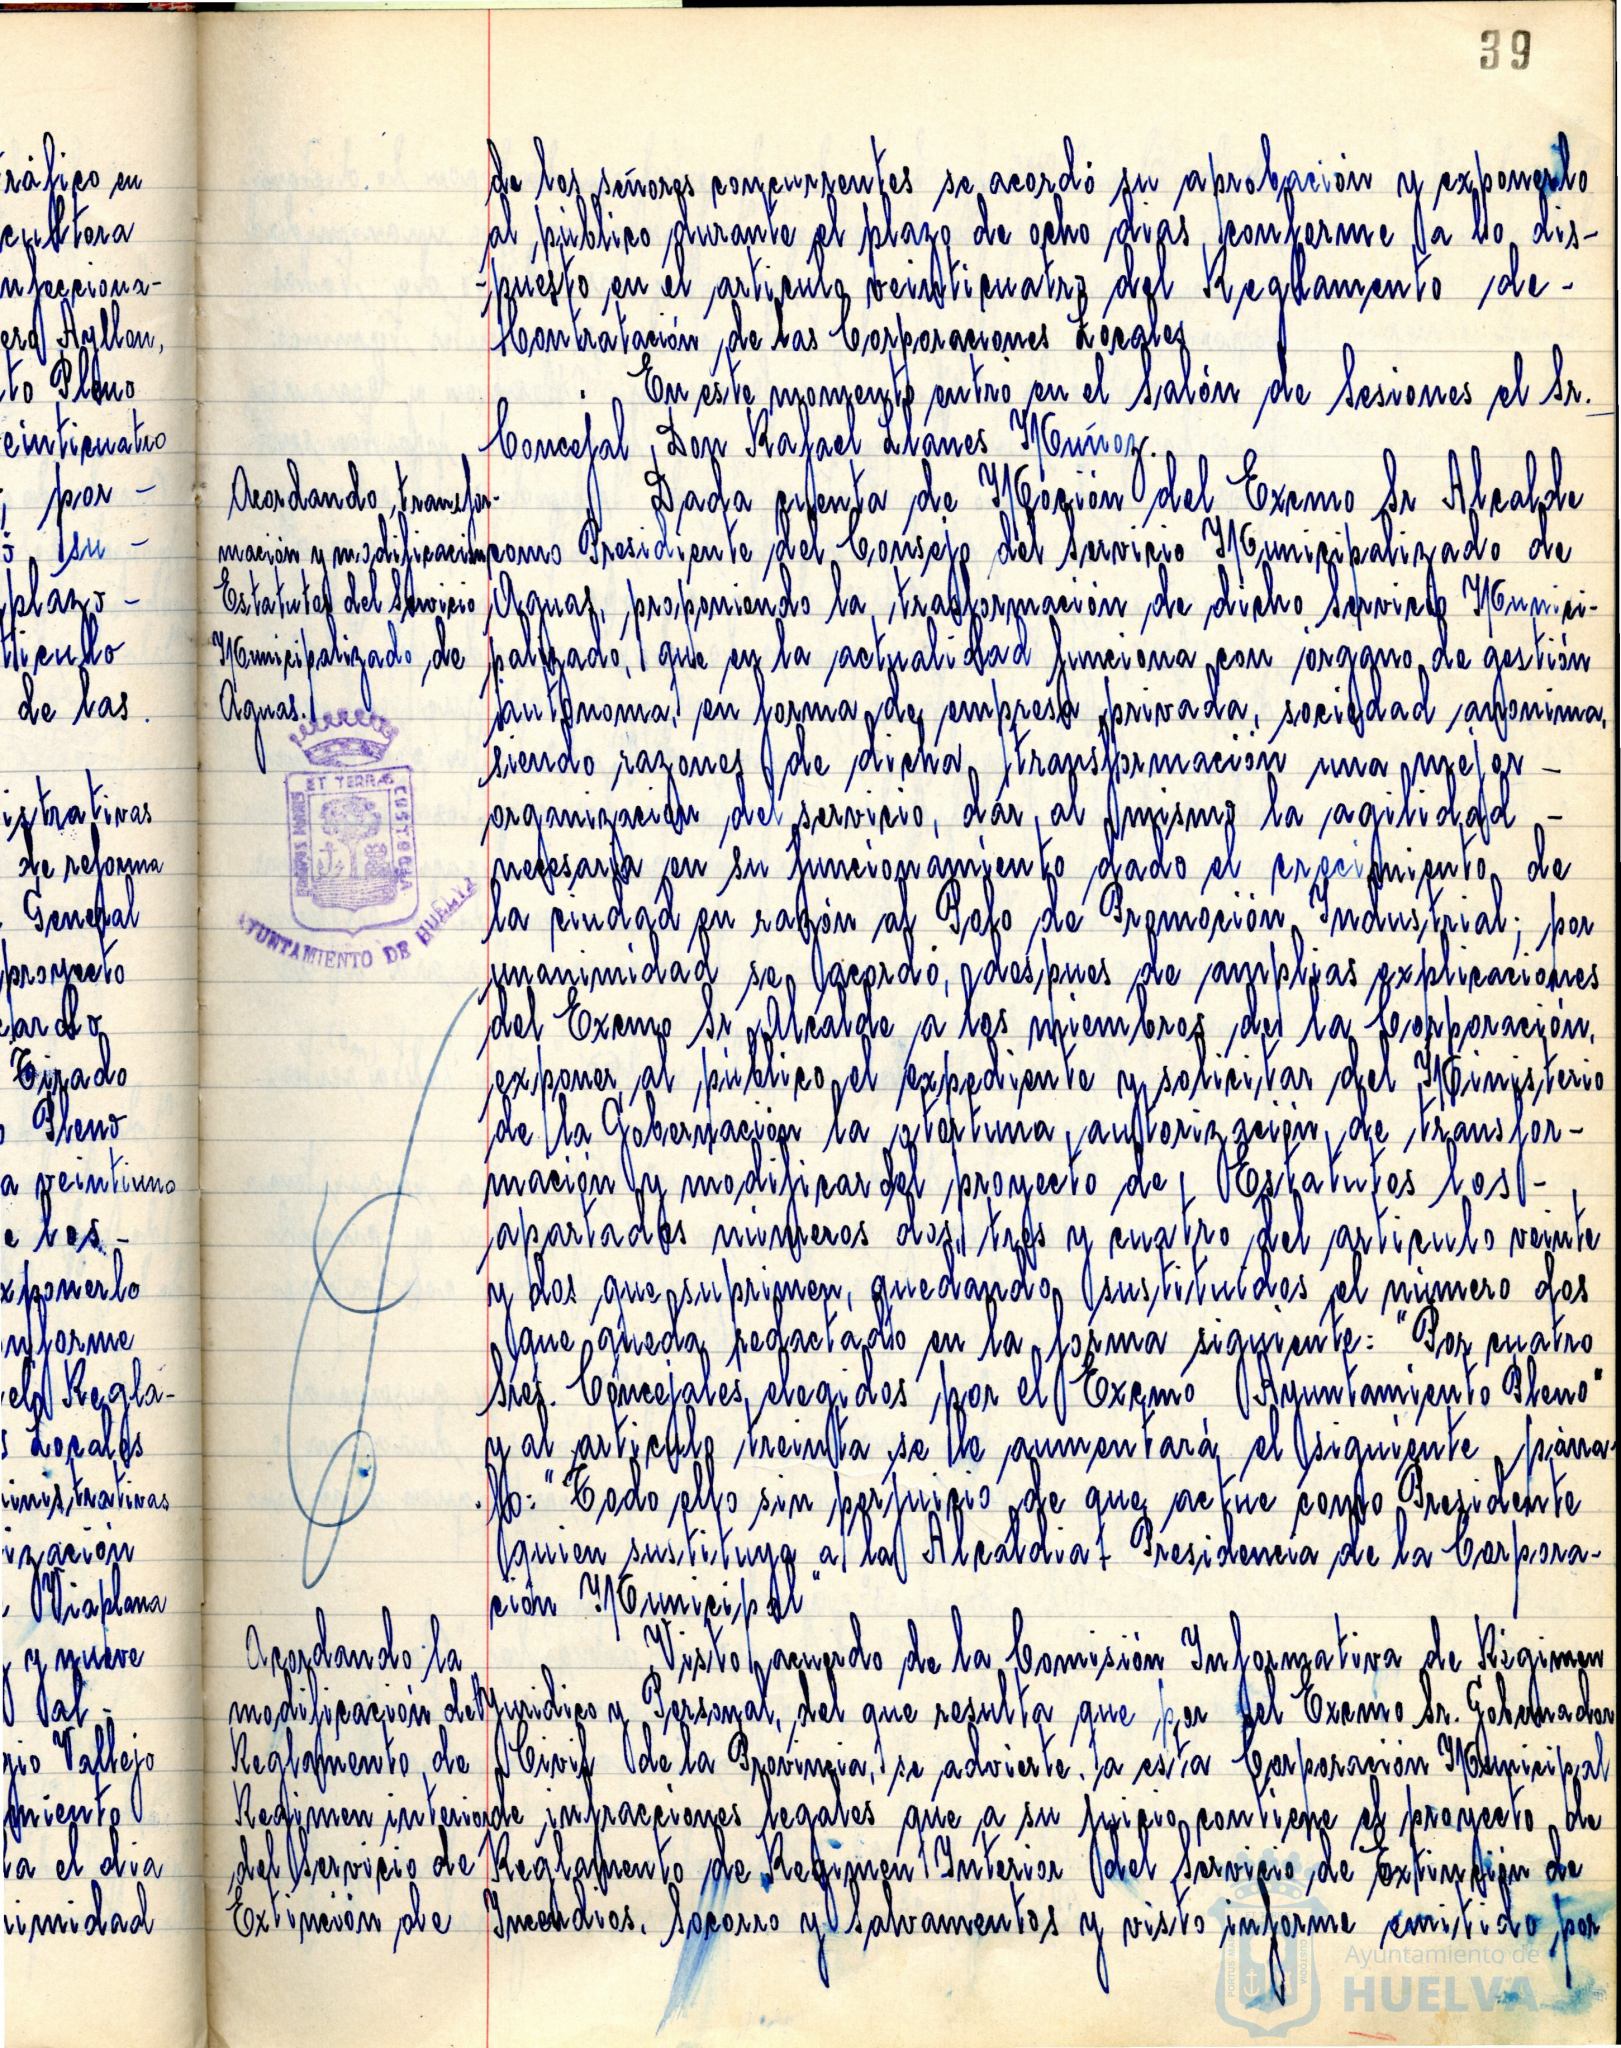 39
ráfico en
cultora
nfecciona-
ero Ayllon,
to Pleno
einticuatro
por -
su -
plazo -
tículo
de las.
istrativas
de reforma
General
proyecto
cardo
Tirado
Pleno
a veintiuno
e los -
xponerlo
nforme
el Regla-
s Locales
inistrativas
ización
Viaplana
y nueve
al -
gio Vallejo
miento
la el dia
imidad
de los señores concurrentes se acordó su aprobación y exponerlo
al público durante el plazo de ocho dias, conforme a lo dis-
-puesto en el articulo veinticuatro del Reglamento de -
Contratación de las Corporaciones Locales
En este momento entró en el Salón de Sesiones el Sr.
Concejal, Don Rafael Llanes Muñoz.
Acordando transfor-
mación y modificación
Estatutos del Servicio
Municipalizado de
Aguas.
Dada cuenta de Moción del Excmo Sr Alcalde
como Presidente del Consejo del Servicio Municipalizado de
Aguas, proponiendo la trasformación de dicho Servicio Munici-
palizado, que en la actualidad funciona con órgano de gestión
autónoma, en forma de empresa privada, sociedad anonima,
siendo razones de dicha transformación una mejor -
organización del servicio, dár al mismo la agilidad -
necesaria en su funcionamiento dado el crecimiento de
la ciudad en razón al Polo de Promoción Industrial; por
unanimidad se acordó, despues de amplias explicaciones
del Excmo Sr Alcalde a los miembros de la Corporación,
exponer al público el expediente y solicitar del Ministerio
de la Gobernación la oportuna autorización de transfor-
mación y modificar del proyecto de Estatutos los -
apartados números dos, tres y cuatro del articulo veinte
y dos que suprimen, quedando sustituidos el número dos
que queda redactado en la forma siguiente: "Por cuatro
Sres. Concejales, elegidos por el Excmo Ayuntamiento Pleno"
y al articulo treinta se le aumentará el siguiente párra-
fo: "Todo ello sin perjuicio de que actue como Presidente
quien sustituya a la Alcaldia - Presidencia de la Corpora-
ción Municipal"
PORTUS MARIS ET TERRAE CUSTODIA
AYUNTAMIENTO DE HUELVA
Acordando la
modificación del
Reglamento de
Regimen interior
del Servicio de
Extinción de
Visto acuerdo de la Comisión Informativa de Régimen
Juridico y Personal, del que resulta que por el Excmo Sr. Gobernador
Civil de la Provincia, se advierte a esta Corporación Municipal
de infracciones legales que a su juicio contiene el proyecto de
Reglamento de Regimen Interior del Servicio de Extinción de
Incendios, Socorro y Salvamentos y visto informe emitido por
Ayuntamiento de
HUELVA